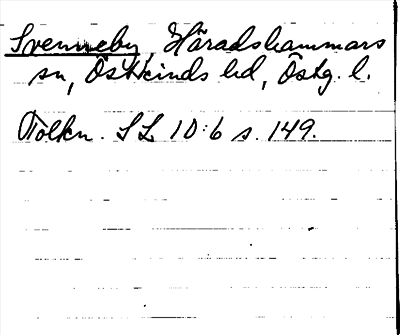 Svenneby, Häradshammars
sn, Östkinds hd, Östg. l.
Tolkn. SL 10:6 s. 149.